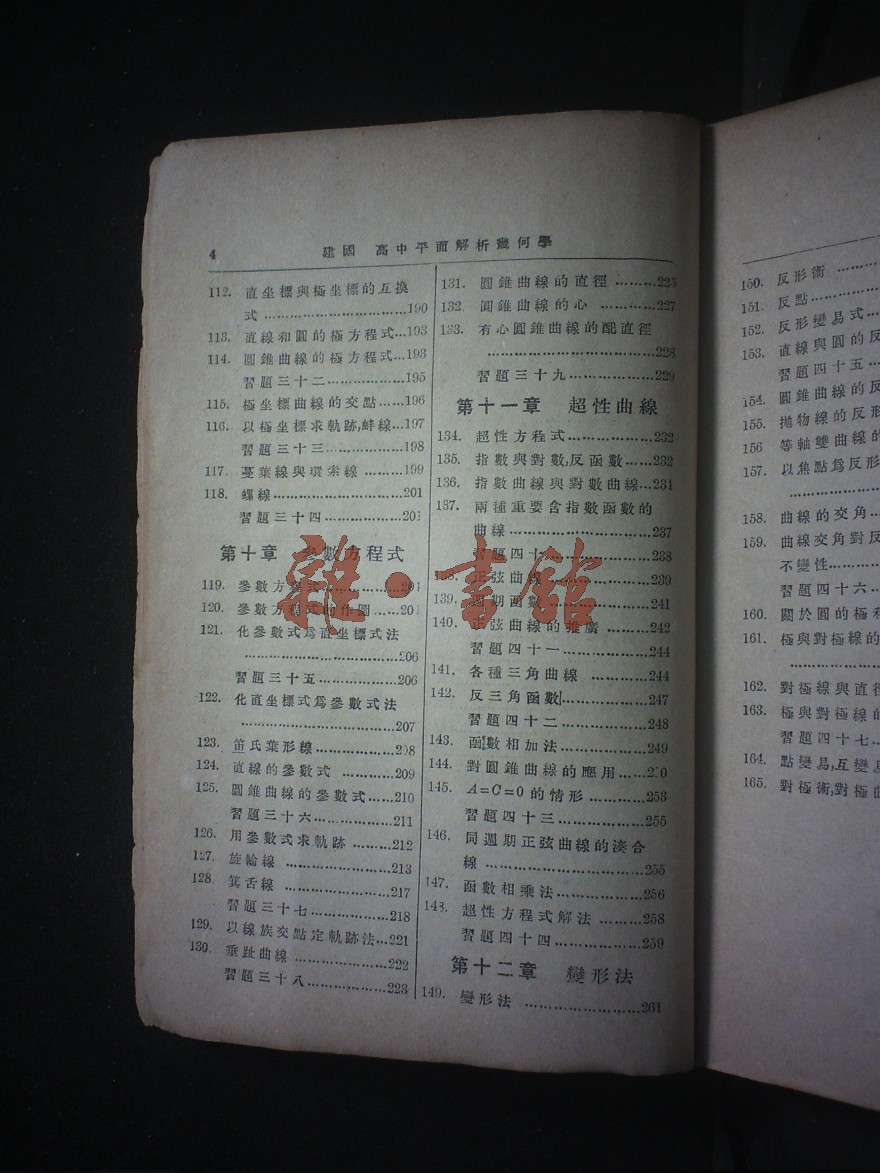 4
建國 高中平面解析幾何學
112. 直坐標與極坐標的互換
式 ……………………190
113. 直線和圓的極方程式…193
114. 圓錐曲線的極方程式…193
習題三十二………………195
115. 極坐標曲線的交點……196
116. 以極坐標求軌跡,蚌線…197
習題三十三………………198
117. 蔓葉線與環索線 ………199
118. 螺線………………………201
習題三十四………………201
第十章 參數方程式
119. 參數方程式………………204
120. 參數方程式的作圖……204
121. 化參數式爲直坐標式法
……………………………206
習題三十五………………206
122. 化直坐標式爲參數式法
……………………………207
123. 笛氏葉形線………………208
124. 直線的參數式 …………209
125. 圓錐曲線的參數式……210
習題三十六………………211
126. 用參數式求軌跡 ………212
127. 旋輪線 …………………213
128. 箕舌線 …………………217
習題三十七………………218
129. 以線族交點定軌跡法…221
130. 垂趾曲線…………………222
習題三十八………………223
131. 圓錐曲線的直徑 ………225
132. 圓錐曲線的心 …………227
133. 有心圓錐曲線的配直徑
……………………………228
習題三十九………………229
第十一章 超性曲線
134. 超性方程式………………232
135. 指數與對數,反函數……232
136. 指數曲線與對數曲線…234
137. 兩種重要含指數函數的
曲線………………………237
習題四十…………………238
138. 正弦曲線…………………239
139. 週期函數…………………241
140. 正弦曲線的推廣 ………242
習題四十一………………244
141. 各種三角曲線 …………244
142. 反三角函數………………247
習題四十二………………248
143. 函數相加法………………249
144. 對圓錐曲線的應用……250
145. A=C=0的情形…………253
習題四十三………………255
146. 同週期正弦曲線的湊合
線 …………………………255
147. 函數相乘法………………256
148. 超性方程式解法 ………258
習題四十四………………259
第十二章 變形法
149. 變形法 …………………261
150. 反形術 ……
151. 反點……
152. 反形變易式…
153. 直線與圓的反
習題四十五…
154. 圓錐曲線的反
155. 拋物線的反形
156 等軸雙曲線的
157. 以焦點爲反形
………
158. 曲線的交角…
159. 曲線交角對反
不變性……
習題四十六…
160. 關於圓的極和
161. 極與對極線的
………
162. 對極線與直徑
163. 極與對極線的
習題四十七…
164. 點變易,互變易
165. 對極術,對極曲
雜·書館